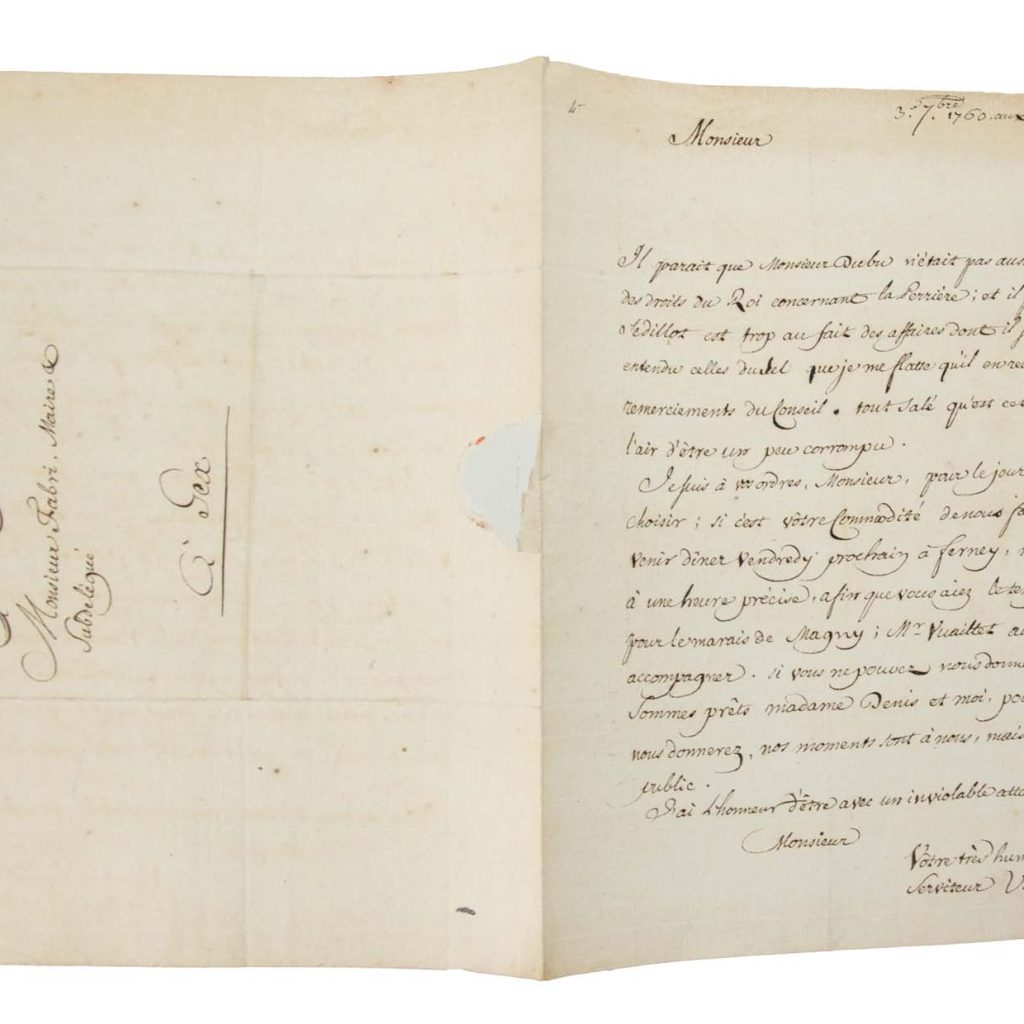 A
Monsieur Fabri, Maire &
Subdelégué
À Gex
3. 7bre. 1760. aux
Monsieur
Il parait que Monsieur Dubu n'était pas aus
des droits du Roi concernant la Perrière; et il
Sédillot est trop au fait des affaires dont il
entendu celles du sel que je me flatte qu'il en re
remerciements du Conseil. tout Salé qu'est cet
l'air d'être un peu corrompu.
Je suis à vos ordres, Monsieur, pour le jour
choisir; si c'est vôtre Commodité de nous fa
venir dîner Vendredy prochain à ferney,
à une heure précise, afin que vous aiez le te
pour le marais de Magny; Mr. Vuaillet a
accompagner. si vous ne pouvez nous donne
Sommes prêts madame Denis et moi, po
nous donnerez, nos moments sont à nous, mais
public.
J'ai l'honneur d'être avec un inviolable atta
Monsieur
Vôtre très hum
Serviteur V